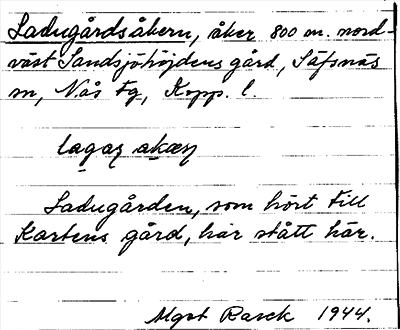 Ladugårdsåkern, åker 800 m. nord-
väst Sandsjöhöjdens gård, Säfsnäs
sn, Nås Fg, Kopp. l.
Ladugården, som hört till
Karstens gård, har stått här.
Mgot Rasck 1944.